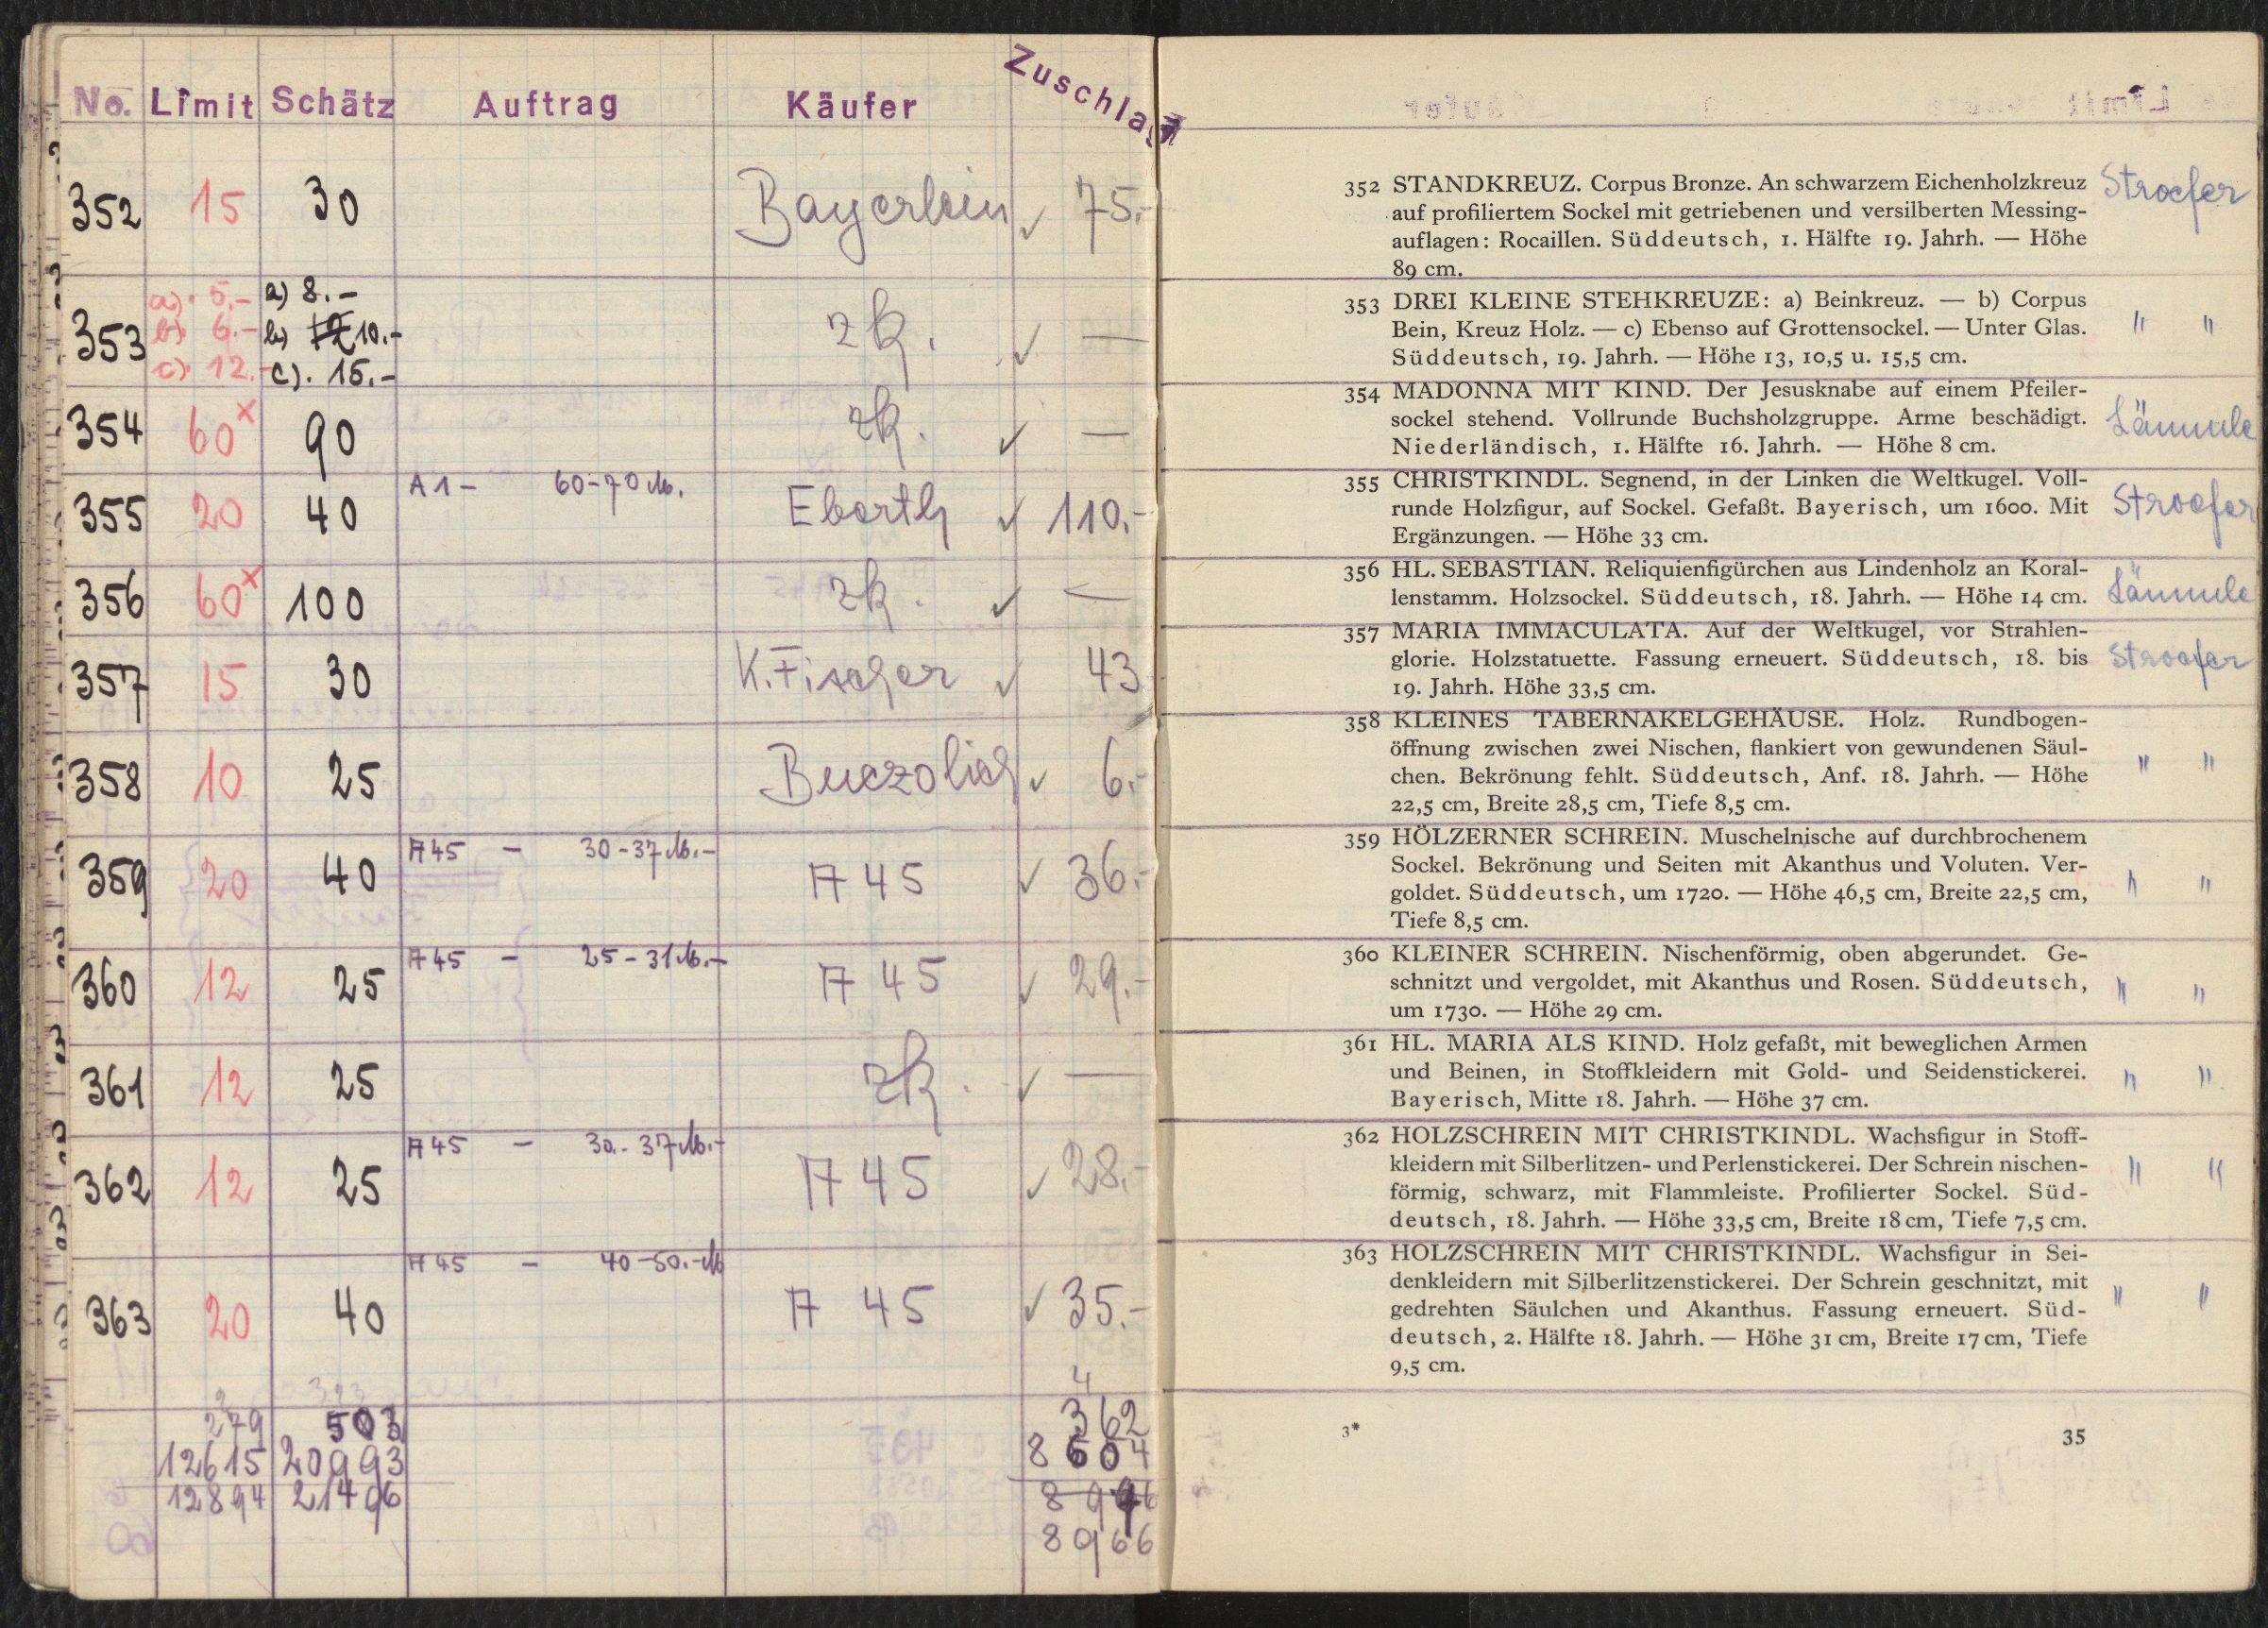 No. Limit Schätz Auftrag Käufer Zuschlag
352 15 30 Bayerlein ✓ 75.-
a). 5.- a) 8.-
353 b) 6.- b) 12 10.- zk. ✓ —
c). 12.- c). 15.-
354 60x 90 zk. ✓ —
A 1 - 60-70 M.
355 20 40 Eberth ✓ 110.-
356 60x 100 zk. ✓ —
357 15 30 K. Fischer ✓ 43
358 10 25 Buczolich ✓ 6.-
A 45 - 30-37 M.-
359 20 40 A 45 ✓ 36.-
A 45 - 25-31 M.-
360 12 25 A 45 ✓ 29.-
361 12 25 zk. ✓ —
A 45 - 30.-37 M.-
362 12 25 A 45 ✓ 28.-
A 45 - 40-50.- M
363 20 40 A 45 ✓ 35.-
4
279 503 362
12615 20993 8 604
12894 21496
8966
352 STANDKREUZ. Corpus Bronze. An schwarzem Eichenholzkreuz Stroefer
auf profiliertem Sockel mit getriebenen und versilberten Messing-
auflagen: Rocaillen. Süddeutsch, 1. Hälfte 19. Jahrh. — Höhe
89 cm.
353 DREI KLEINE STEHKREUZE: a) Beinkreuz. — b) Corpus
Bein, Kreuz Holz. — c) Ebenso auf Grottensockel. — Unter Glas. " "
Süddeutsch, 19. Jahrh. — Höhe 13, 10,5 u. 15,5 cm.
354 MADONNA MIT KIND. Der Jesusknabe auf einem Pfeiler-
sockel stehend. Vollrunde Buchsholzgruppe. Arme beschädigt. Lämmle
Niederländisch, 1. Hälfte 16. Jahrh. — Höhe 8 cm.
355 CHRISTKINDL. Segnend, in der Linken die Weltkugel. Voll-
runde Holzfigur, auf Sockel. Gefaßt. Bayerisch, um 1600. Mit Stroefer
Ergänzungen. — Höhe 33 cm.
356 HL. SEBASTIAN. Reliquienfigürchen aus Lindenholz an Koral-
lenstamm. Holzsockel. Süddeutsch, 18. Jahrh. — Höhe 14 cm. Lämmle
357 MARIA IMMACULATA. Auf der Weltkugel, vor Strahlen-
glorie. Holzstatuette. Fassung erneuert. Süddeutsch, 18. bis Stroefer
19. Jahrh. Höhe 33,5 cm.
358 KLEINES TABERNAKELGEHÄUSE. Holz. Rundbogen-
öffnung zwischen zwei Nischen, flankiert von gewundenen Säul- " "
chen. Bekrönung fehlt. Süddeutsch, Anf. 18. Jahrh. — Höhe
22,5 cm, Breite 28,5 cm, Tiefe 8,5 cm.
359 HÖLZERNER SCHREIN. Muschelnische auf durchbrochenem
Sockel. Bekrönung und Seiten mit Akanthus und Voluten. Ver- " "
goldet. Süddeutsch, um 1720. — Höhe 46,5 cm, Breite 22,5 cm,
Tiefe 8,5 cm.
360 KLEINER SCHREIN. Nischenförmig, oben abgerundet. Ge-
schnitzt und vergoldet, mit Akanthus und Rosen. Süddeutsch, " "
um 1730. — Höhe 29 cm.
361 HL. MARIA ALS KIND. Holz gefaßt, mit beweglichen Armen
und Beinen, in Stoffkleidern mit Gold- und Seidenstickerei. " "
Bayerisch, Mitte 18. Jahrh. — Höhe 37 cm.
362 HOLZSCHREIN MIT CHRISTKINDL. Wachsfigur in Stoff-
kleidern mit Silberlitzen- und Perlenstickerei. Der Schrein nischen- " "
förmig, schwarz, mit Flammleiste. Profilierter Sockel. Süd-
deutsch, 18. Jahrh. — Höhe 33,5 cm, Breite 18 cm, Tiefe 7,5 cm.
363 HOLZSCHREIN MIT CHRISTKINDL. Wachsfigur in Sei-
denkleidern mit Silberlitzenstickerei. Der Schrein geschnitzt, mit
gedrehten Säulchen und Akanthus. Fassung erneuert. Süd- " "
deutsch, 2. Hälfte 18. Jahrh. — Höhe 31 cm, Breite 17 cm, Tiefe
9,5 cm.
3* 35